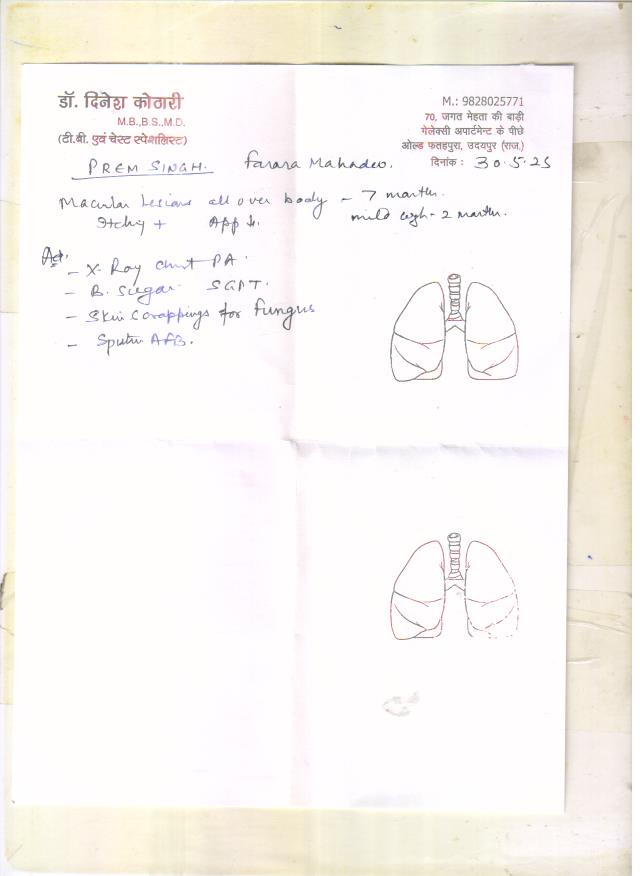 डॉ. दिनेश कोठारी
M.B.,B.S.,M.D.
(टी.बी. एवं चेस्ट स्पेशलिस्ट)
M.: 9828025771
70, जगत मेहता की बाड़ी
गेलेक्सी अपार्टमेन्ट के पीछे
ओल्ड फतहपुरा, उदयपुर (राज.)
दिनांक : 30.5.25
PREM SINGH. Farara Mahadev.
Macular Lesions all over body - 7 months.
Itchy + App ↓. mild cough - 2 months.
- X-Ray Chest PA.
- B. Sugar SGPT.
- Skin Scrappings for Fungus
- Sputum AFB.